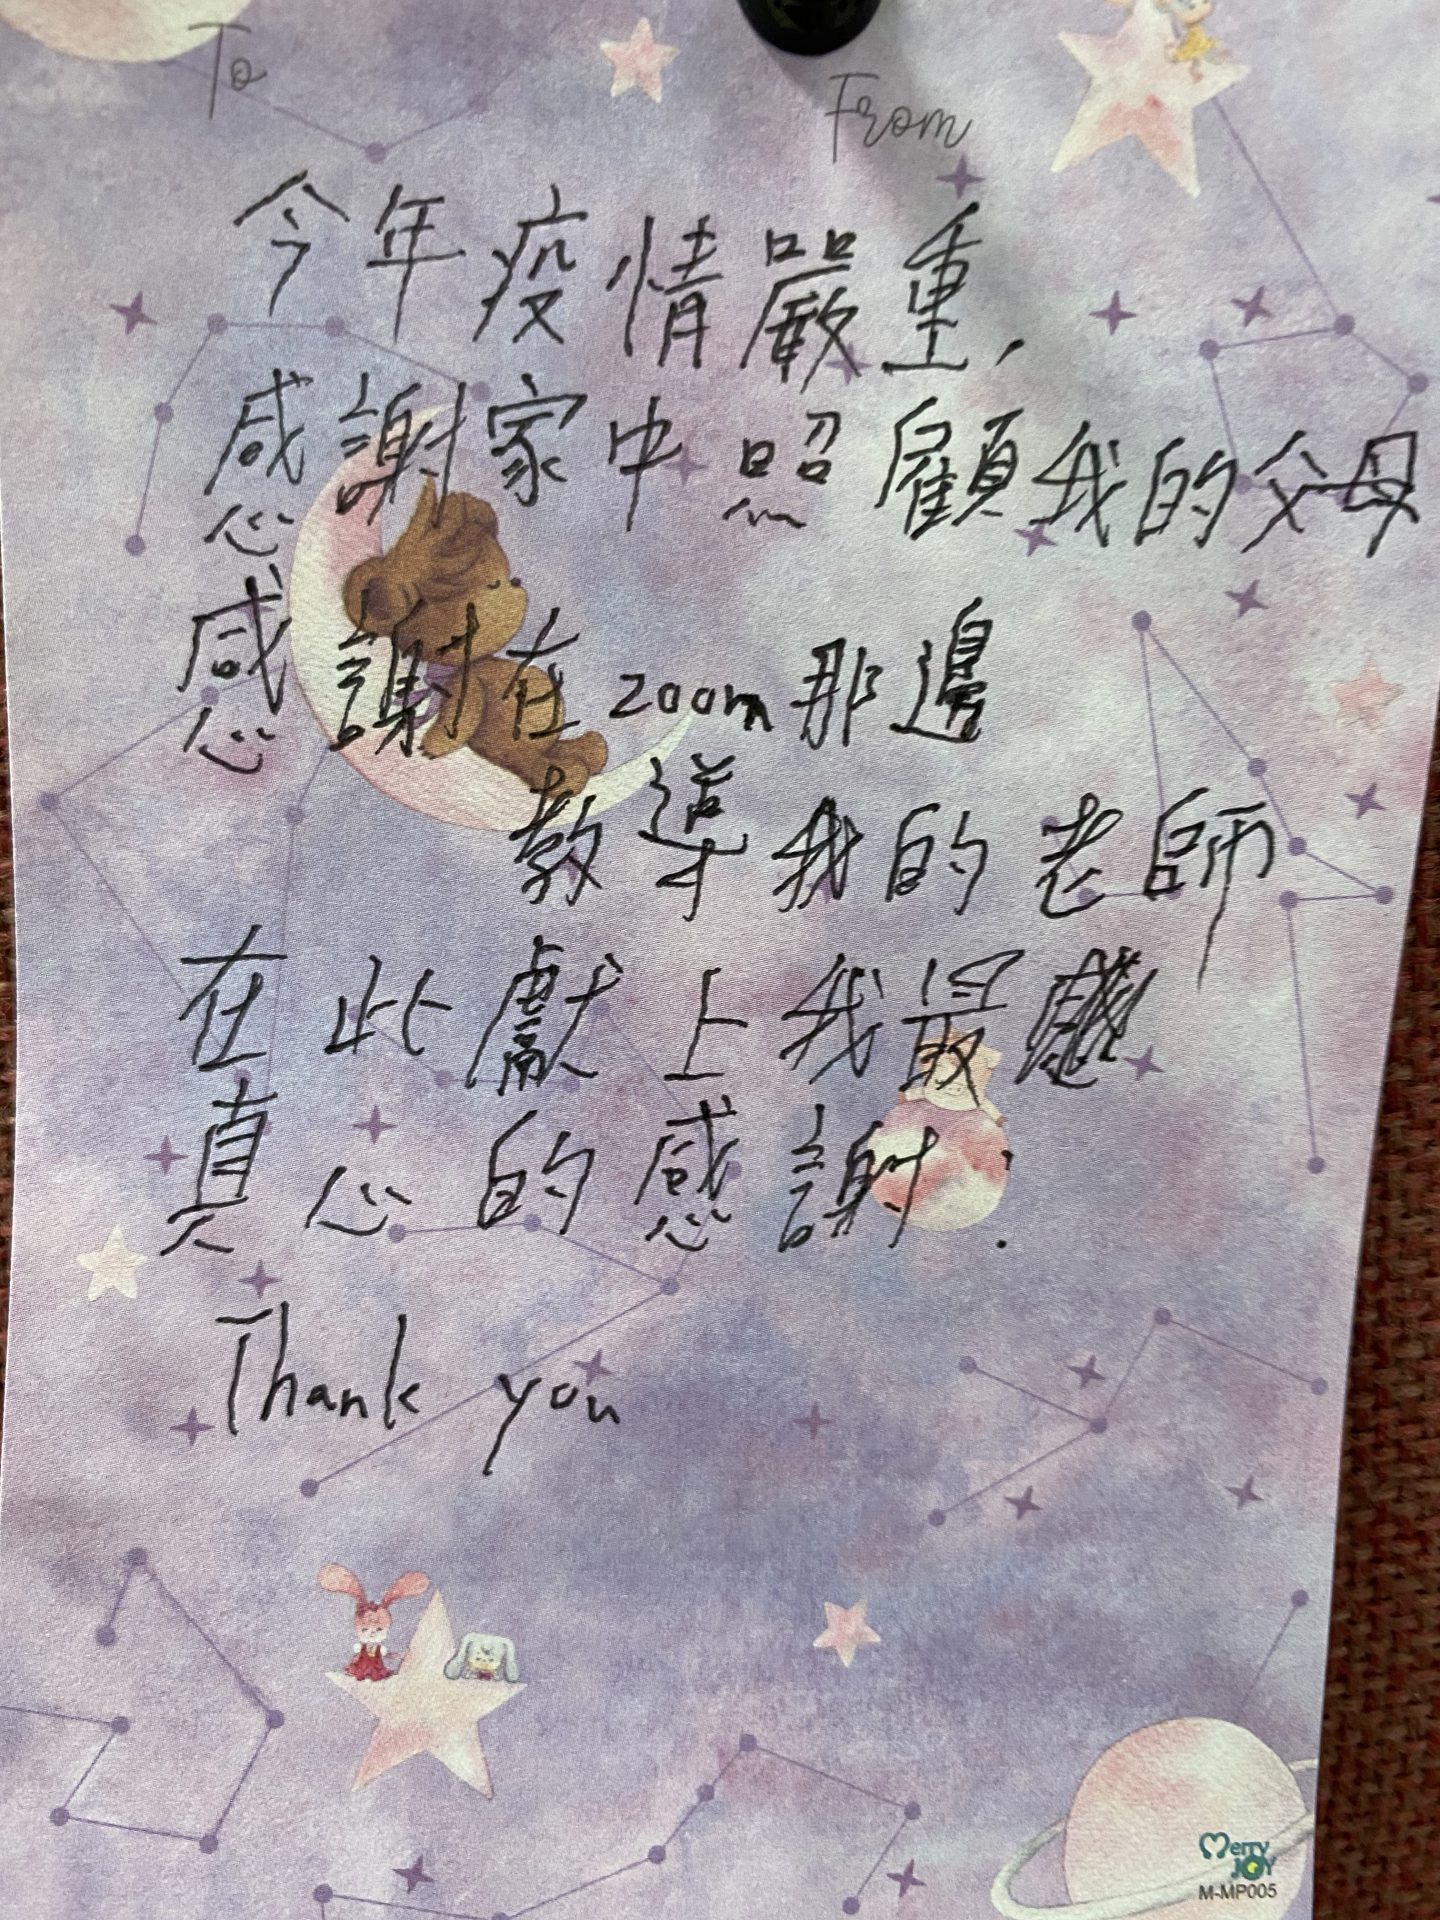 To
From
今年疫情嚴重,
感謝家中照顧我的父母
感謝在zoom那邊
教導我的老師
在此獻上我最
真心的感謝:
Thank you
Merry JOY
M-MP005